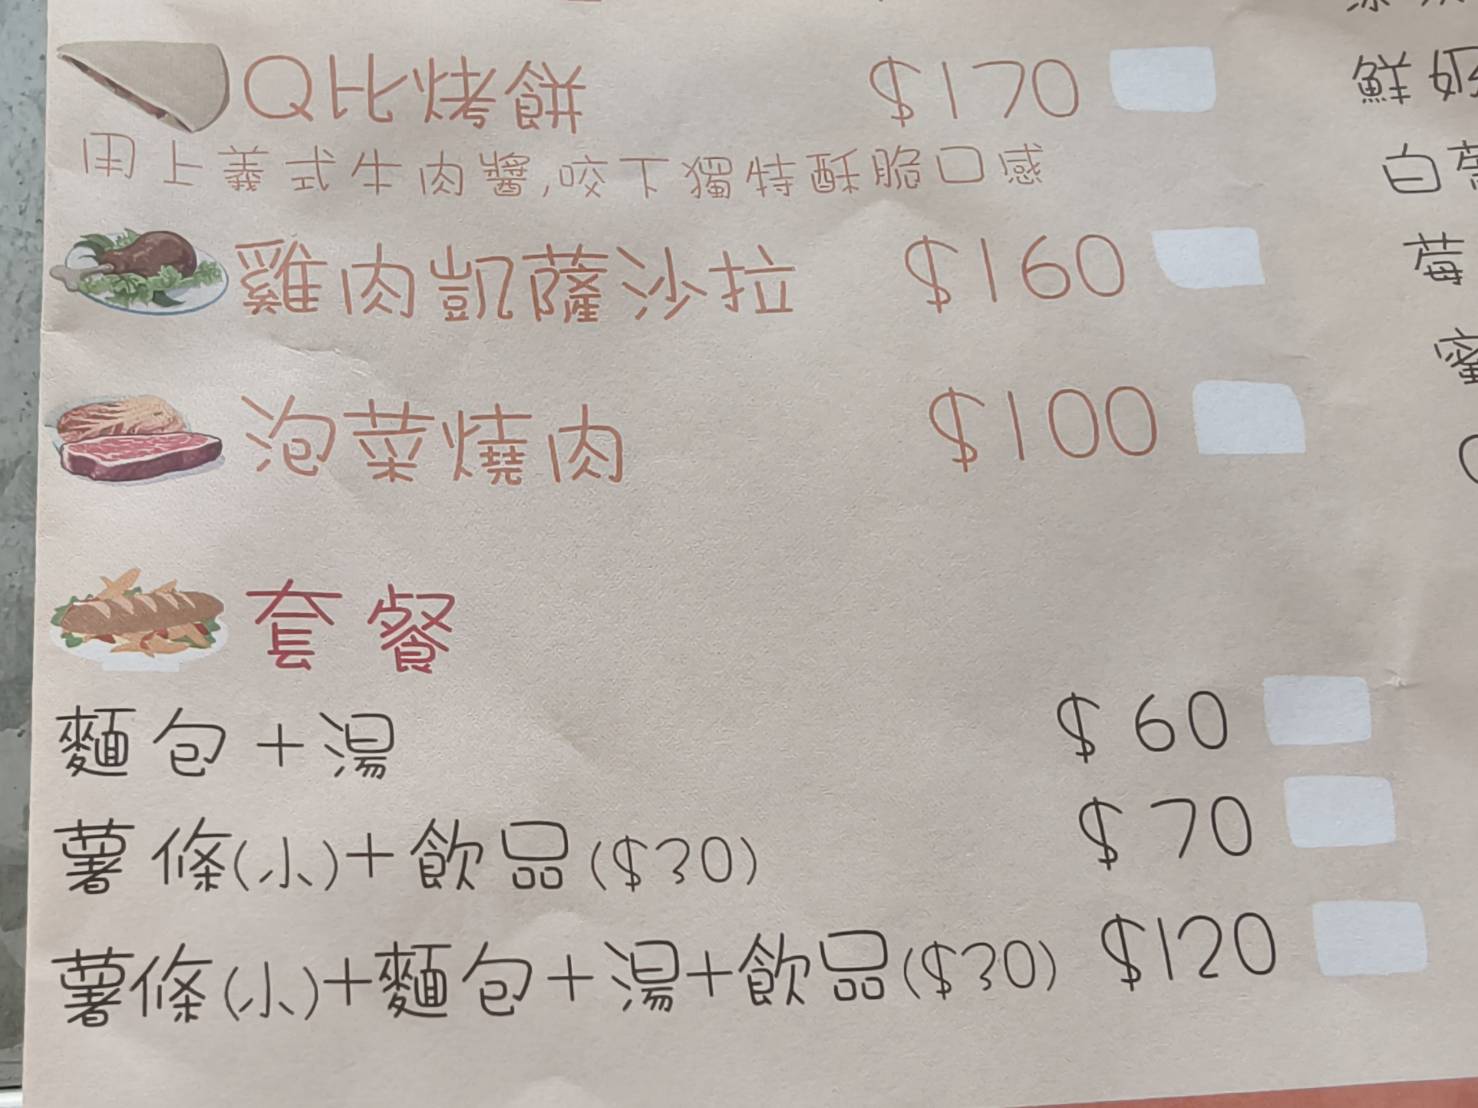 Q比烤餅 $170
用上義式牛肉醬,咬下獨特酥脆口感
雞肉凱薩沙拉 $160
泡菜燒肉 $100
套餐
麵包+湯 $60
薯條(小)+飲品($30) $70
薯條(小)+麵包+湯+飲品($30) $120
鮮奶
白
莓